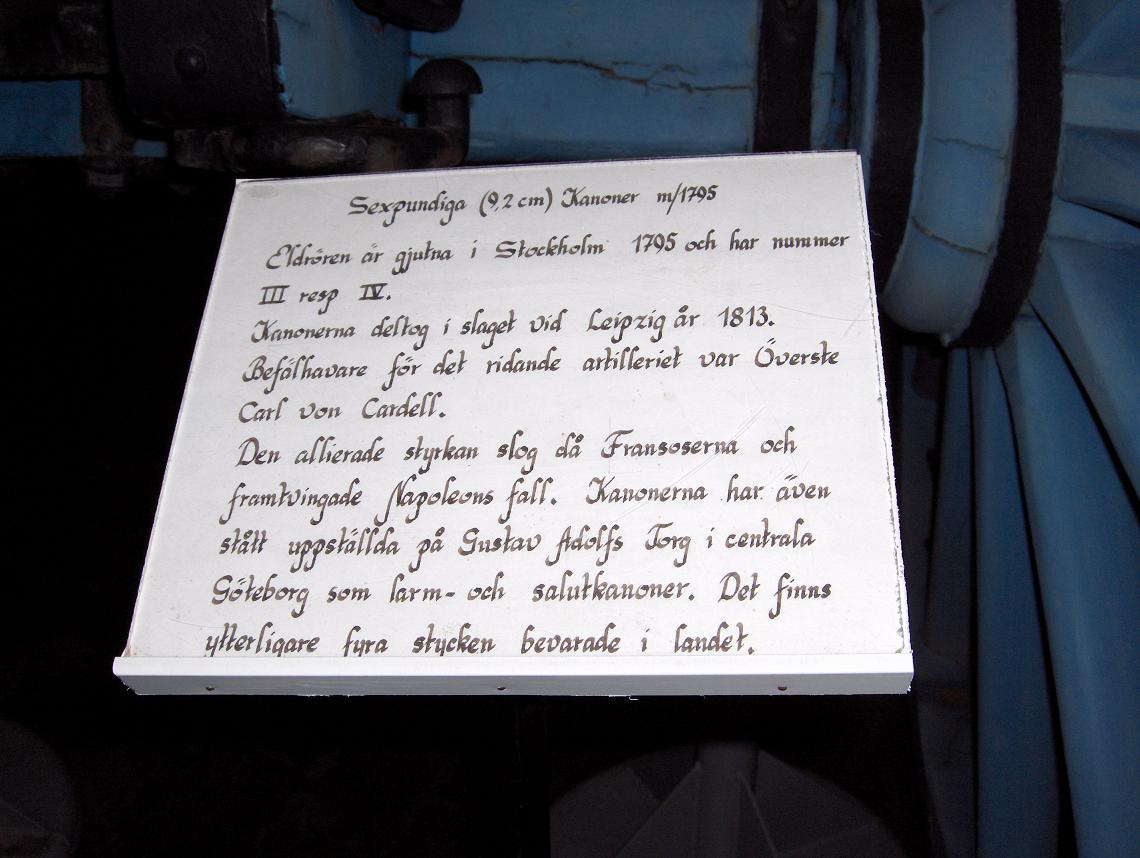 Sexpundiga (9,2 cm) Kanoner m/1795
Eldrören är gjutna i Stockholm 1795 och har nummer
III resp IV.
Kanonerna deltog i slaget vid Leipzig år 1813.
Befälhavare för det ridande artilleriet var Överste
Carl von Cardell.
Den allierade styrkan slog då Fransoserna och
framtvingade Napoleons fall. Kanonerna har även
stått uppställda på Gustav Adolfs Torg i centrala
Göteborg som larm- och salutkanoner. Det finns
ytterligare fyra stycken bevarade i landet.